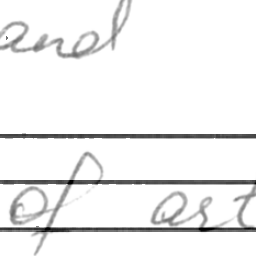 and
of art